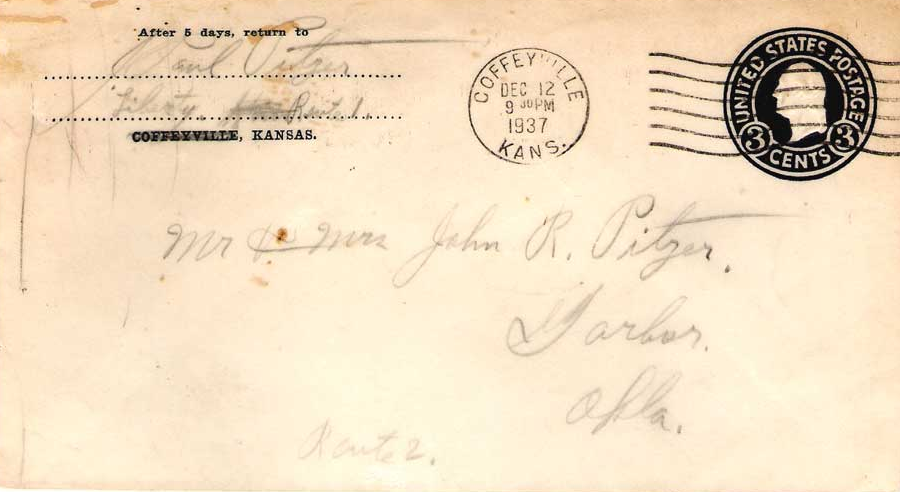 After 5 days, return to
Paul Pitzer
Liberty, Rout 1.
COFFEYVILLE, KANSAS.
COFFEYVILLE
DEC 12
9 30 PM
1937
KANS.
UNITED STATES POSTAGE
3 CENTS 3
Mr & Mrs John R. Pitzer.
Garber.
Okla.
Route 2.